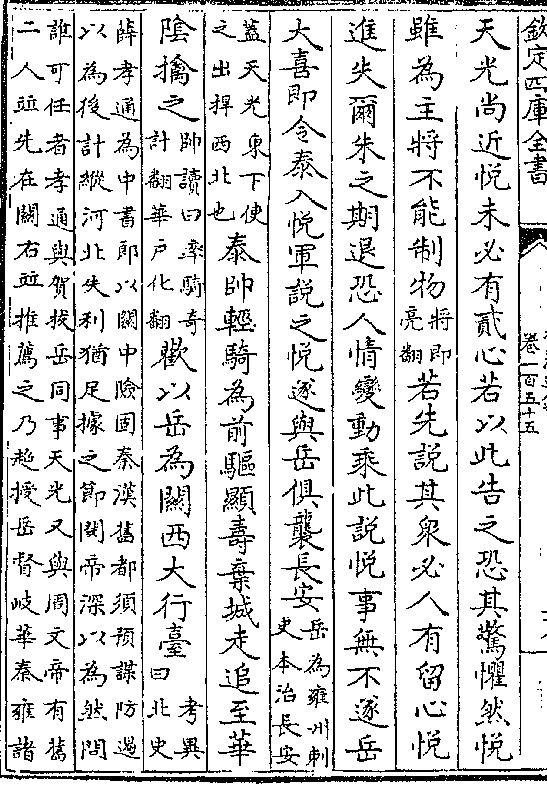 欽定四庫全書
卷一百五十五
天光尚近悦未必有貳心若以此告之恐其驚懼然悦
雖為主將不能制物將即亮翻若先説其衆必人有留心悦
進失爾朱之期退恐人情變動乘此説悦事無不遂岳
大喜即令泰入悦軍説之悦遂與岳俱襲長安岳為雍州刺史本治長安
蓋天光東下使之出捍西北也泰帥輕騎為前驅顯壽棄城走追至華
陰擒之帥讀曰率騎奇計翻華户化翻歡以岳為關西大行臺考異曰北史
薛孝通為中書郎以關中險固秦漢舊都須預謀防遏
以為後計縱河北失利猶足據之節閔帝深以為然問
誰可任者孝通與賀拔岳同事天光又與周文帝有舊
二人並先在關右並推薦之乃超授岳督岐華秦雍諸